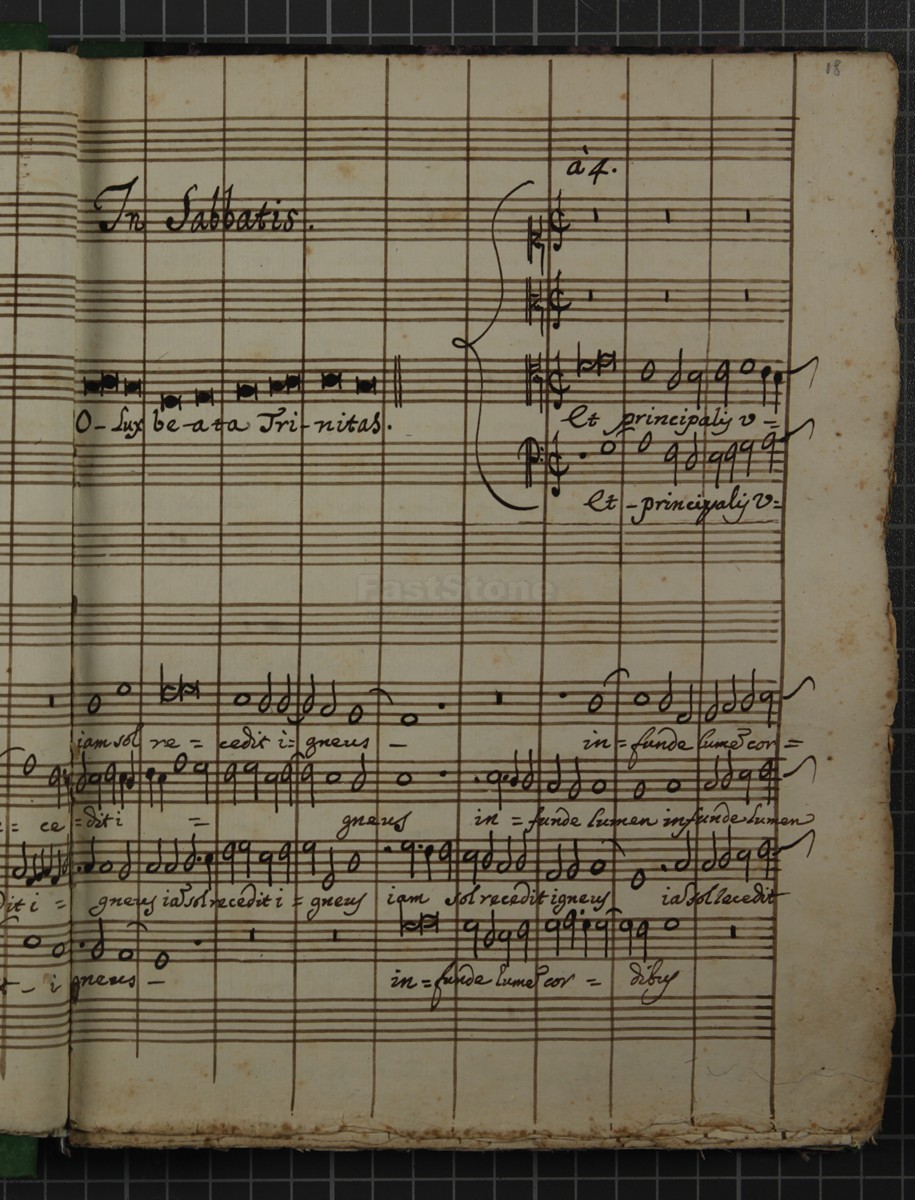 18
à 4.
In Sabbatis.
O-Lux be-a-ta Tri-nitas.
Et principalis v =
Et -principalis v=
FastStone
iam sol re = cedit i= gneus -
in = funde lumē cor =
= ce =diti = gneus in = funde lumen infunde lumen
dit i = gneus iāsol recedit i = gneus iam sol recedit igneus iāsol recedit
- i gneus - in=funde lumē cor = dibus